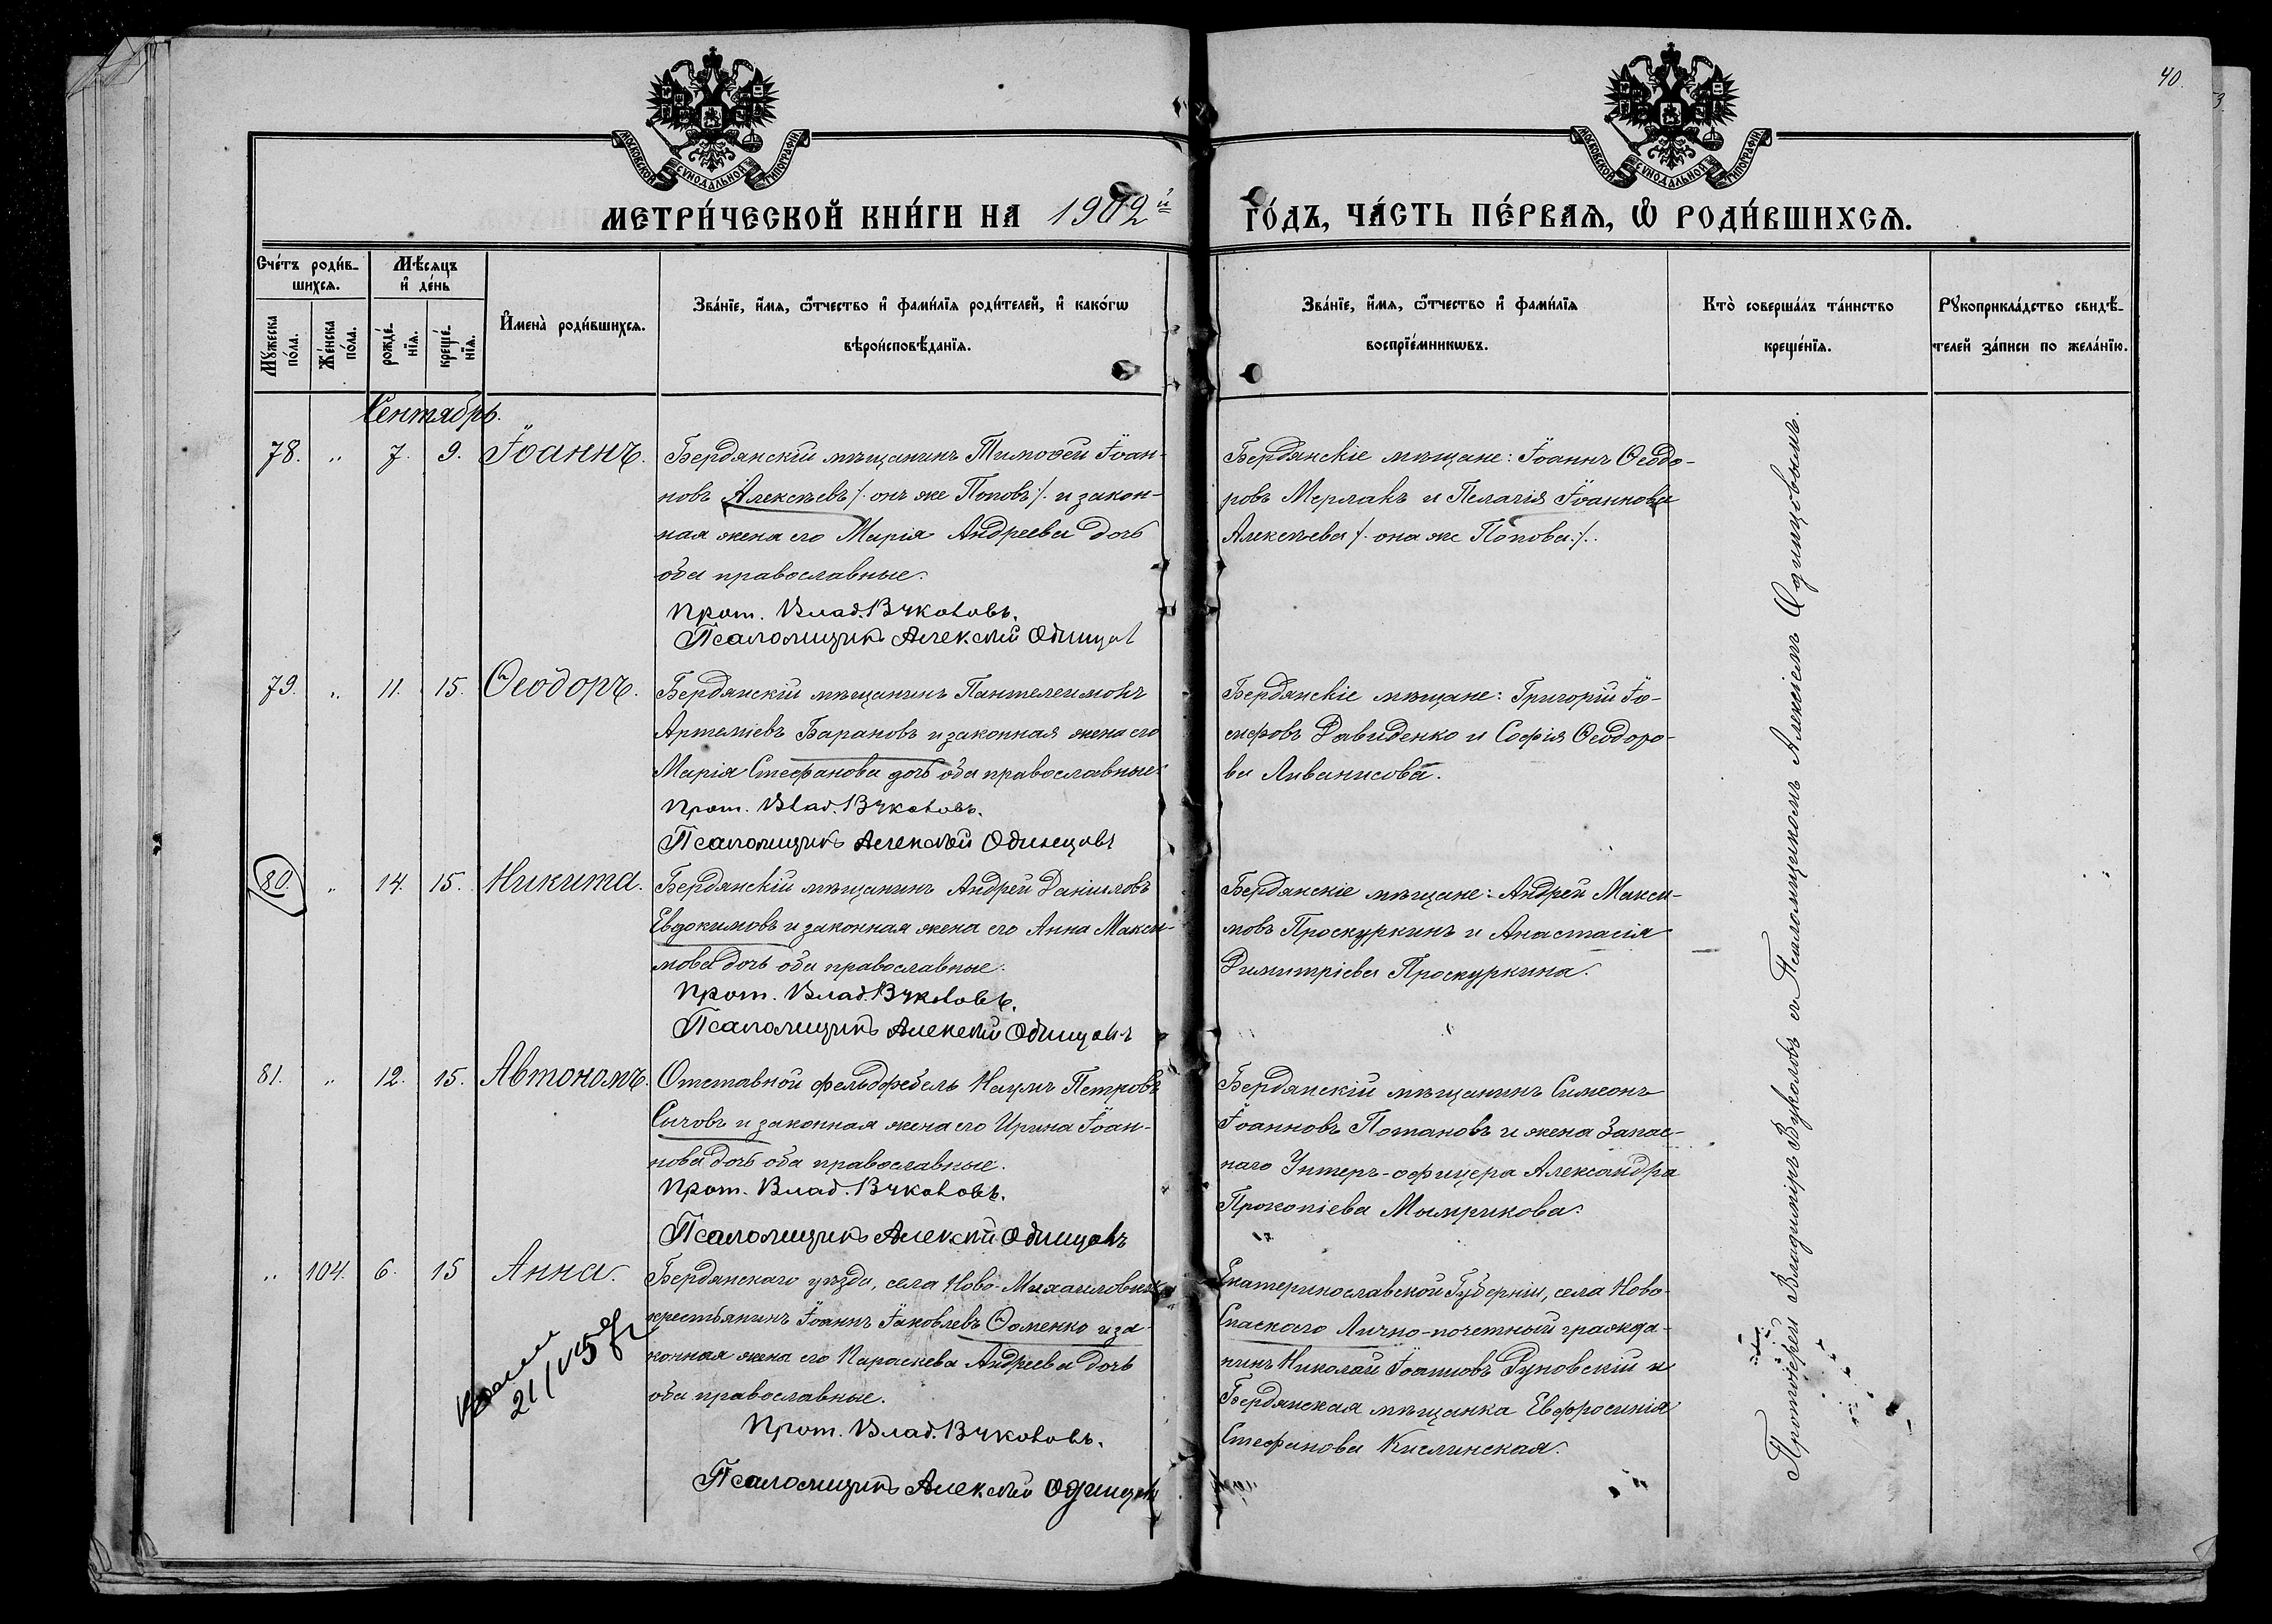 40.
3.
МОСКОВСКОЙ СѴНОДАЛЬНОЙ ТИПОГРАФІИ
МОСКОВСКОЙ СѴНОДАЛЬНОЙ ТИПОГРАФІИ
МЕТРИ́ЧЕСКОЙ КНИ́ГИ НА 1902й ГО́ДЪ, ЧА́СТЬ ПЕ́РВАѦ, Ѡ҆ РОДИ́ВШИХСѦ.
Сче́тъ роди́в-
шихсѧ.
Мꙋжеска
по́ла.
Же́нска
по́ла.
Мѣ́сѧцъ
и҆ де́нь
рожде́-
нїѧ.
креще́-
нїѧ.
И҆мена̀ роди́вшихсѧ.
Зва́нїе, и҆́мѧ, ѻ҆́тчество и҆ фами́лїѧ роди́телей, и҆ како́гѡ
вѣроисповѣ́данїѧ.
Зва́нїе, и҆́мѧ, ѻ҆́тчество и҆ фами́лїѧ
воспрїе́мникѡвъ.
Кто̀ соверша́лъ та́инство
креще́нїѧ.
Рꙋкоприкла́дство свидѣ́-
телей за́писи по жела́нїю.
Сентябрь.
78. „ 7. 9. Іоаннъ.
Бердянскій мѣщанинъ Тимоѳей Іоан-
новъ Алексѣевъ /: онъ же Поповъ :/ и закон-
ная жена его Марія Андреева дочь
оба православные.
Прот. Влад. Вуколовъ.
Псаломщикъ Алексѣй Одинцов
Бердянскіе мѣщане: Іоаннъ Ѳеодо-
ровъ Мерлакъ и Пелагія Іоаннова
Алексѣева /: она же Попова :/.
79. „ 11. 15. Ѳеодоръ.
Бердянскій мѣщанинъ Пантелеимонъ
Артеміевъ Барановъ и законная жена его
Марія Стефанова дочь оба православные.
Прот. Влад. Вуколовъ.
Псаломщикъ Алексѣй Одинцовъ
Бердянскіе мѣщане: Григорій Іо-
сифовъ Давиденко и Софія Ѳеодоро-
ва Ливанисова.
80. „ 14. 15. Никита.
Бердянскій мѣщанинъ Андрей Даніиловъ
Евдокимовъ и законная жена его Анна Макси-
мова дочь оба православные.
Прот. Влад. Вуколовъ.
Псаломщикъ Алексѣй Одинцовъ
Бердянскіе мѣщане: Андрей Макси-
мовъ Проскуркинъ и Анастасія
Димитріева Проскуркина.
81. „ 12. 15. Автономъ.
Отставной фельдфебель Наумъ Петровъ
Сычовъ и законная жена его Ирина Іоан-
нова дочь оба православные.
Прот. Влад. Вуколовъ.
Псаломщикъ Алексѣй Одинцовъ
Бердянскій мѣщанинъ Симеонъ
Іоанновъ Потаповъ и жена Запас-
наго Унтеръ-офицера Александра
Прокопіева Мымрикова.
„ 104. 6. 15 Анна.
21/V 15
Бердянскаго уѣзда, села Ново-Михаиловки
крестьянинъ Іоаннъ Іаковлевъ Ѳоменко и за-
конная жена его Параскева Андреева дочь
оба православные.
Прот. Влад. Вуколовъ.
Псаломщикъ Алексѣй Одинцовъ
Екатеринославской Губерніи, села Ново-
Спаскаго Лично-почетный гражда-
нинъ Николай Іоанновъ Руновскій и
Бердянская мѣщанка Евфросинія
Стефанова Кислинская.
Протоіерей Владиміръ Вуколовъ съ Псаломщикомъ Алексѣемъ Одинцовымъ.